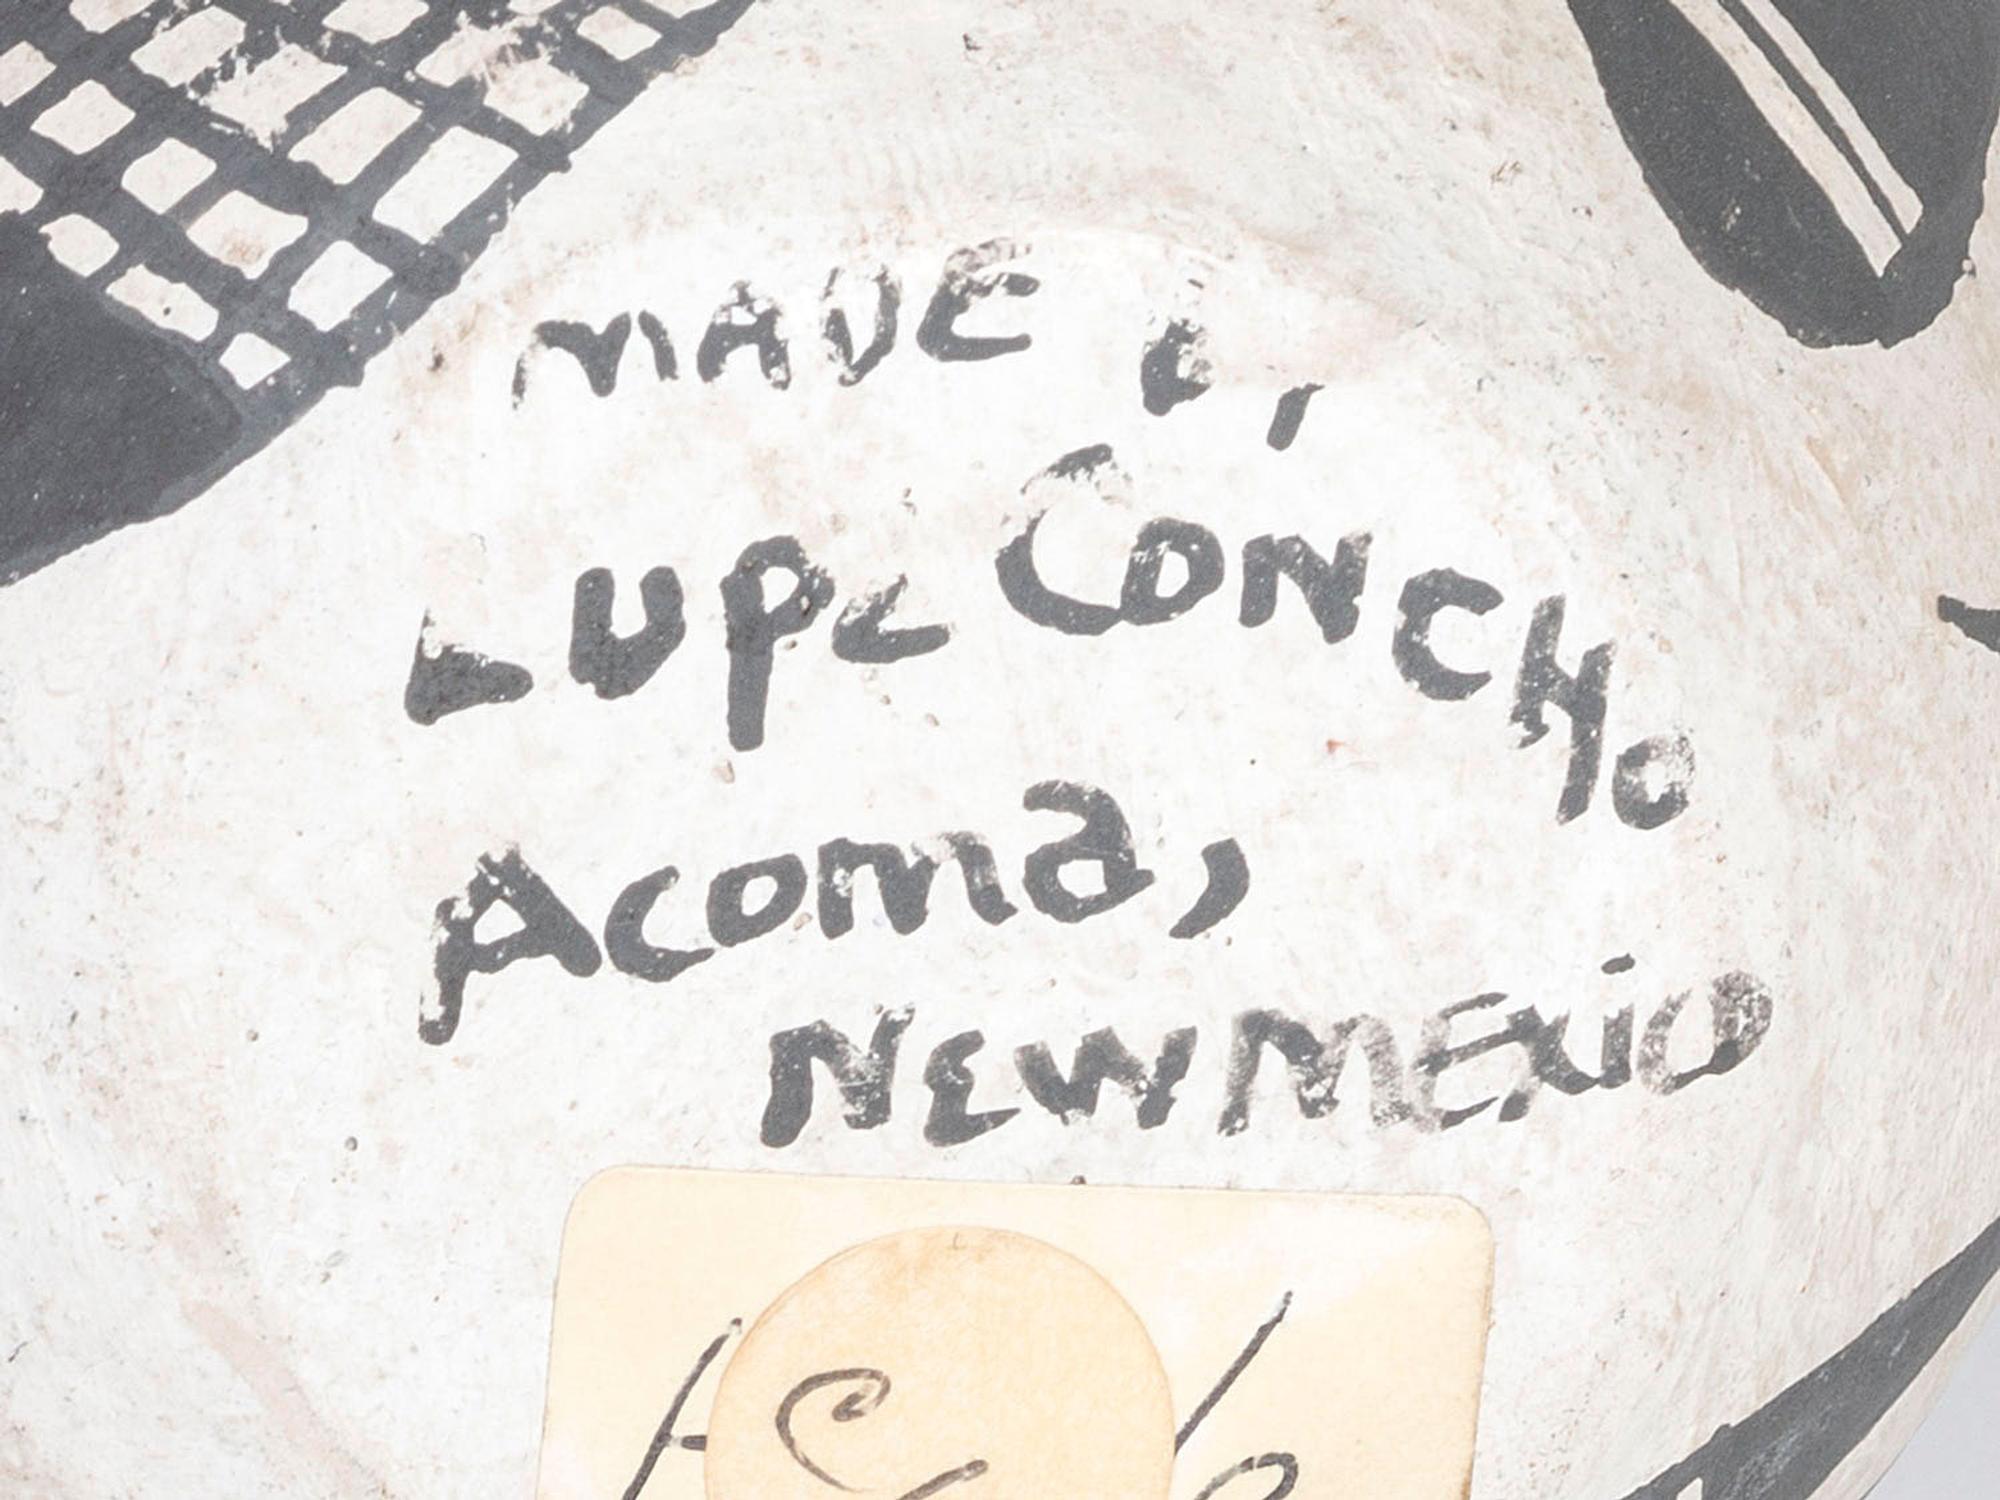 MADE
Lupe Concho
Acoma,
NEW MEXICO